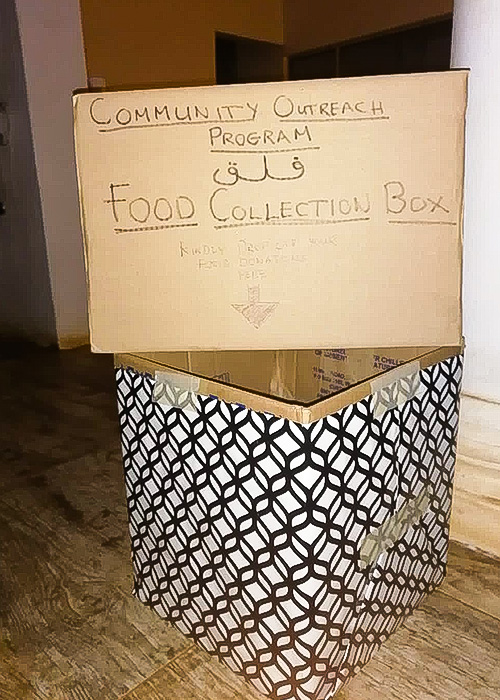 COMMUNITY OUTREACH
PROGRAM
فلق
FOOD COLLECTION BOX
KINDLY DROP OFF YOUR
FOOD DONATIONS
HERE